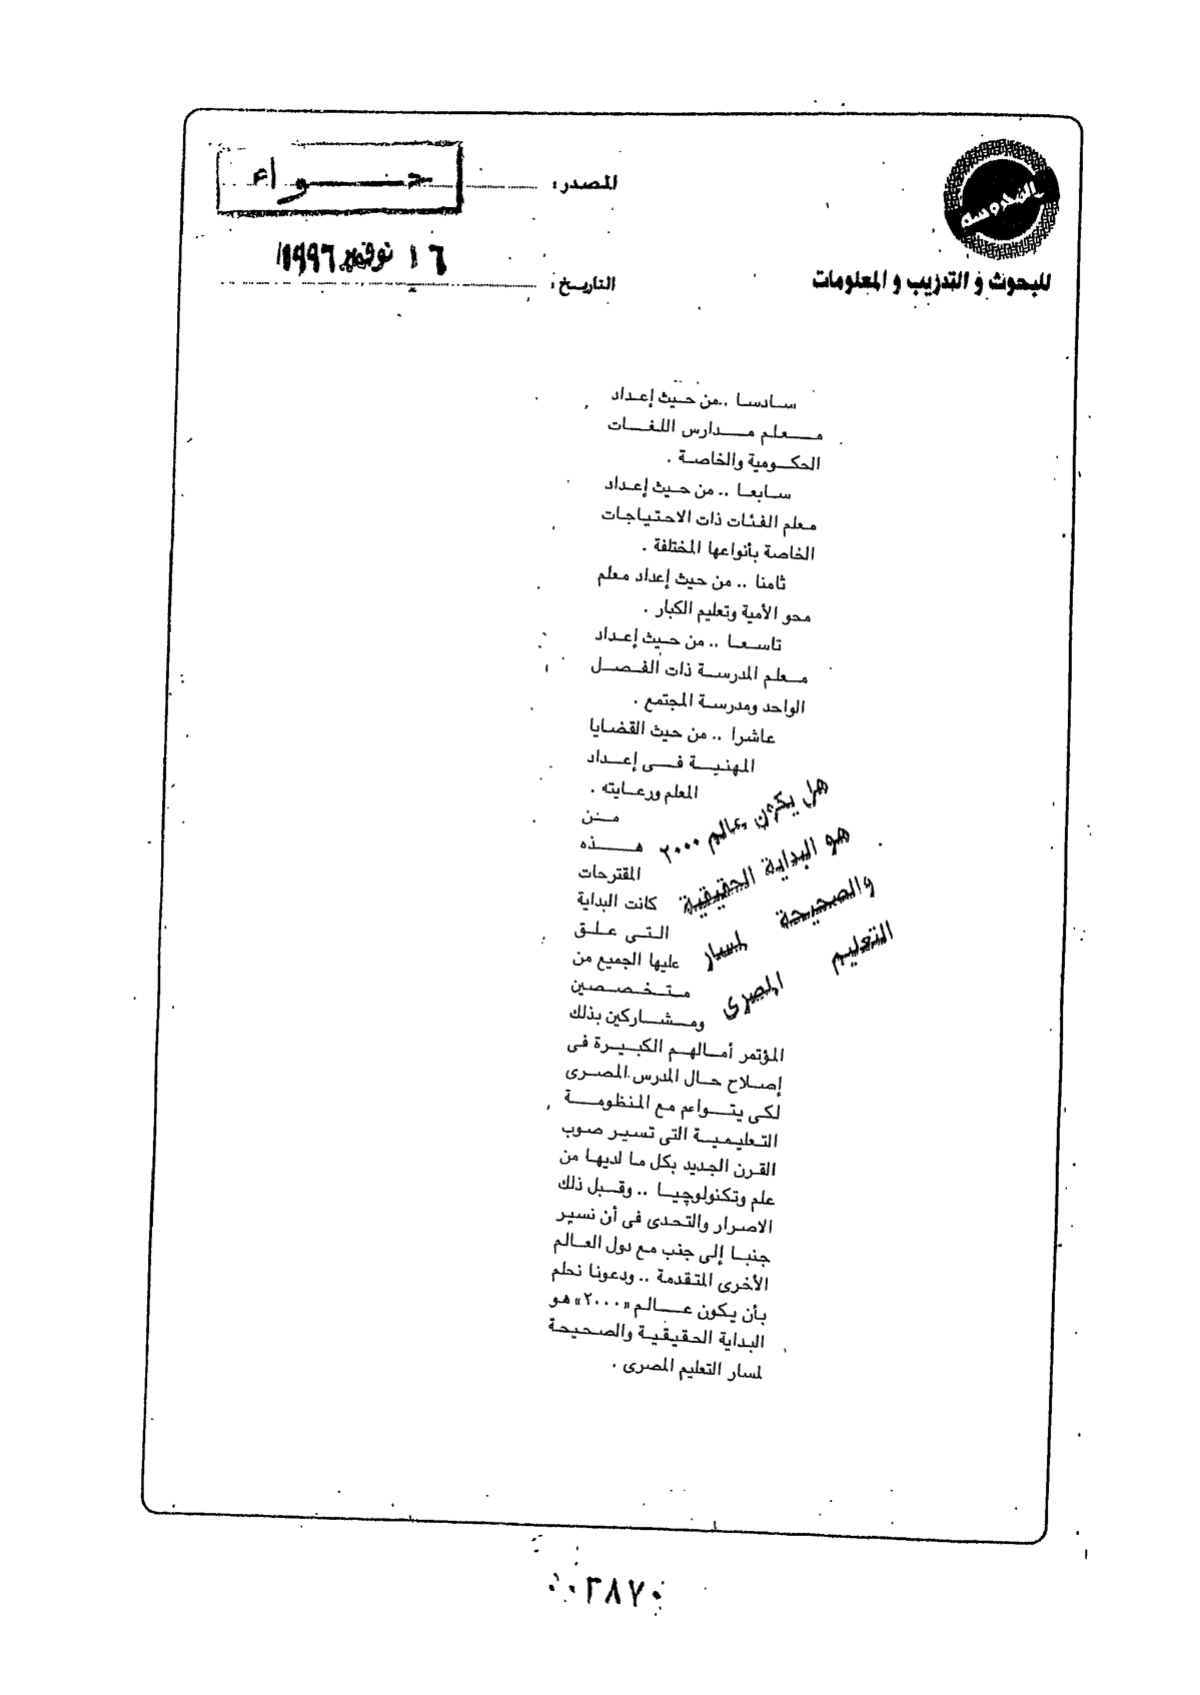 المحروسة
للبحوث و التدريب و المعلومات
المصدر: حواء
التاريخ: ١٦ نوفمبر ١٩٩٦
سادسا .. من حيث إعداد
معلم مدارس اللغات
الحكومية والخاصة .
سابعا .. من حيث إعداد
معلم الفئات ذات الاحتياجات
الخاصة بأنواعها المختلفة .
ثامنا .. من حيث إعداد معلم
محو الأمية وتعليم الكبار .
تاسعا .. من حيث إعداد
معلم المدرسة ذات الفصل
الواحد ومدرسة المجتمع .
عاشرا .. من حيث القضايا
المهنية فى إعداد
المعلم ورعايته .
من
هذه
المقترحات
كانت البداية
التى علق
عليها الجميع من
متخصصين
ومشاركين بذلك
المؤتمر أمالهم الكبيرة فى
إصلاح حال المدرس المصرى
لكى يتواءم مع المنظومة
التعليمية التى تسير صوب
القرن الجديد بكل ما لديها من
علم وتكنولوچيا .. وقبل ذلك
الاصرار والتحدى فى أن نسير
جنبا إلى جنب مع دول العالم
الأخرى المتقدمة .. ودعونا نحلم
بأن يكون عالم «٢٠٠٠» هو
البداية الحقيقية والصحيحة
لمسار التعليم المصرى .
هل يكون عالم ٢٠٠٠
هو البداية الحقيقية
والصحيحة لمسار
التعليم المصرى
٠٠٣٨٧٠